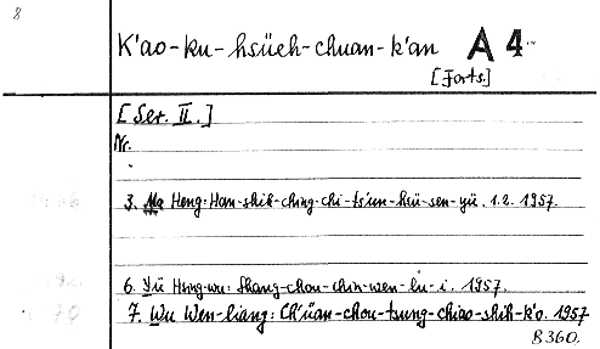 8
K'ao-ku-hsüeh-chuan-k'an A 4
[Forts.]
[Ser. II.]
Nr.
3. Ma Heng: Han-shih-ching-chi-ts'un-hsü-sen-yü. 1.2. 1957.
6. Yü Hsing-wu: Shang-chou-chin-wen-lu-i. 1957.
7. Wu Wen-liang: Ch'üan-chou-tsung-chiao-shih-k'o. 1957
B 360.